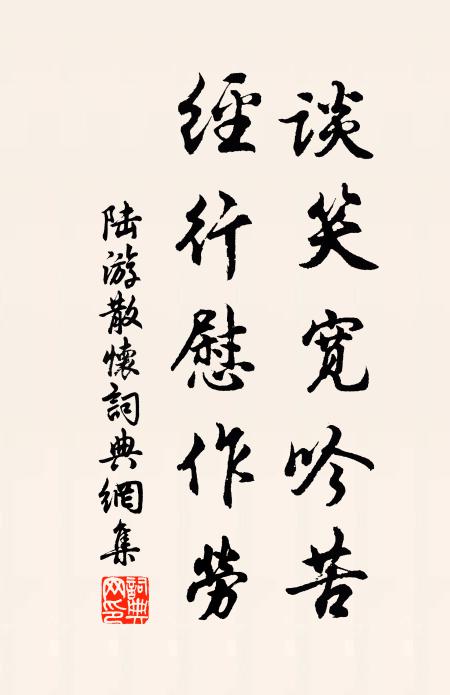 谈笑宽吟苦
經行慰作勞
陆游散懷詞典網集
詞典网印